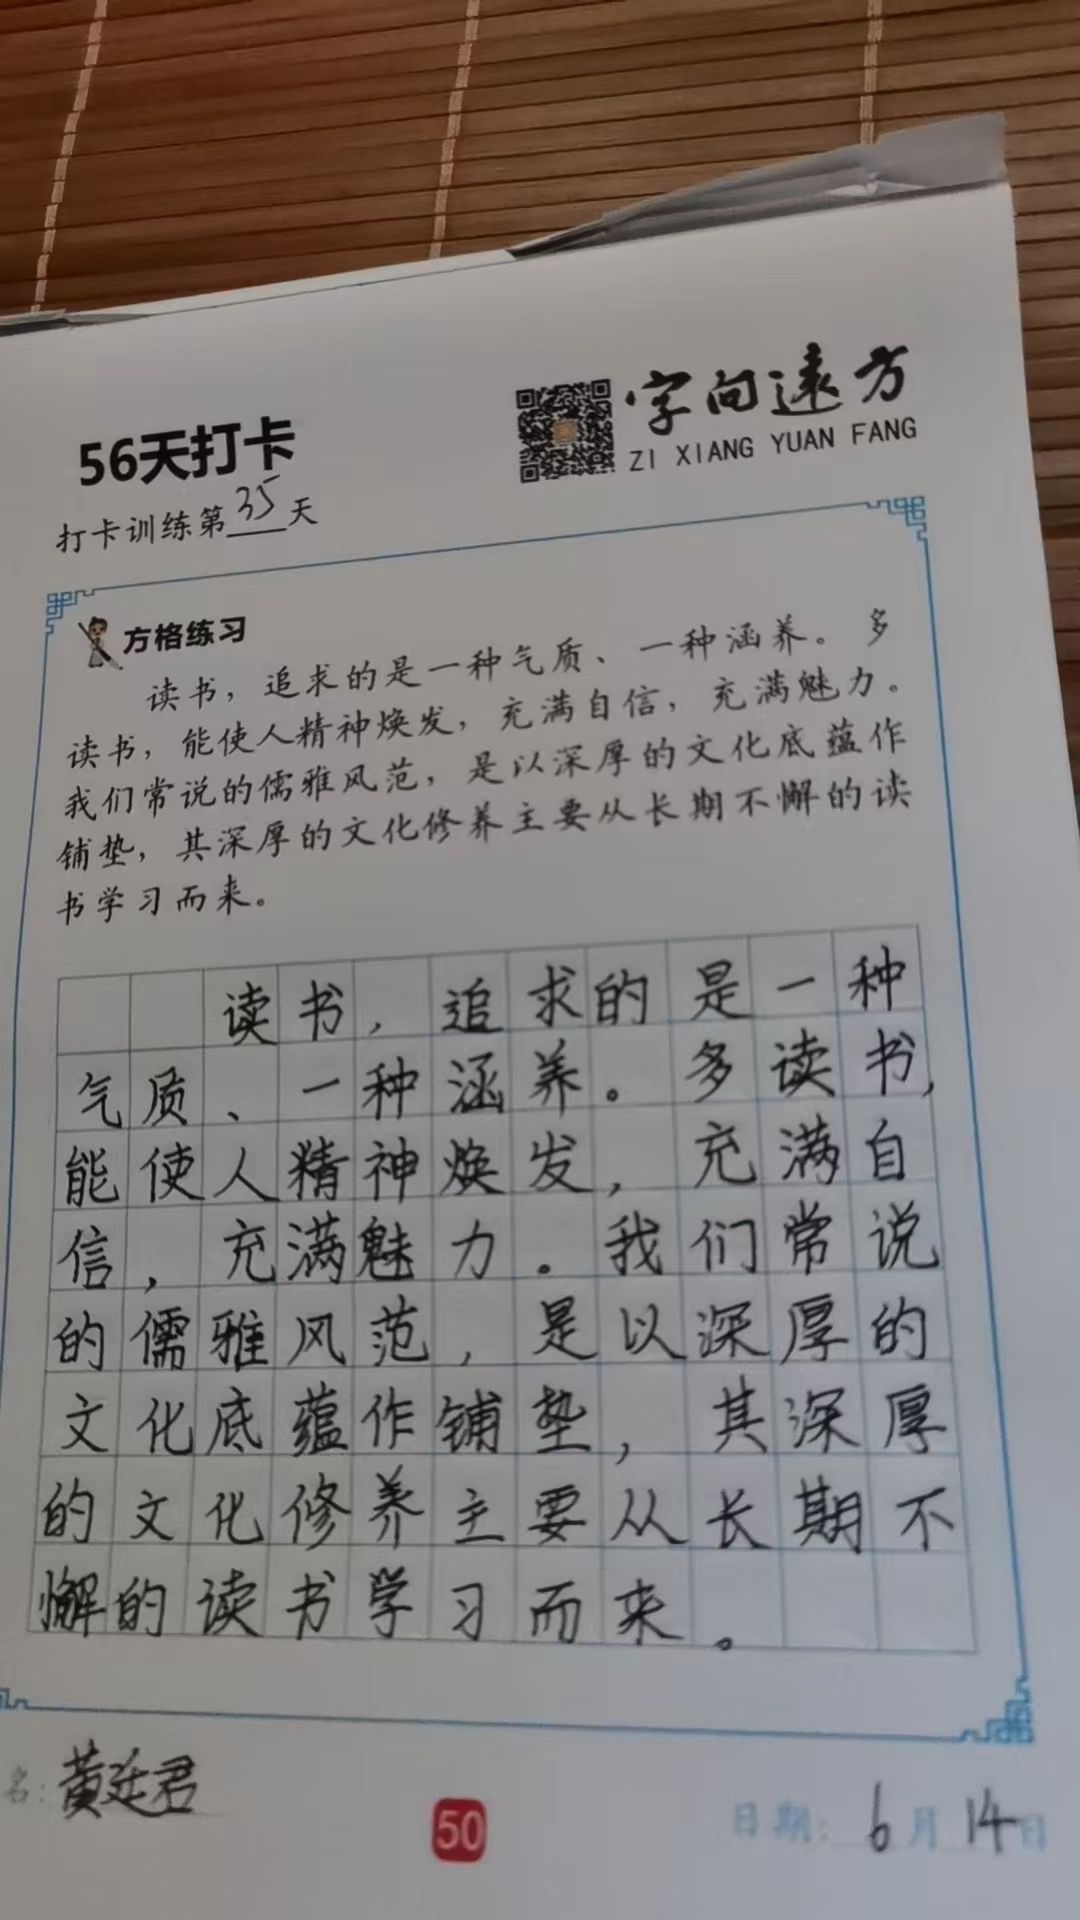 字向远方
ZI XIANG YUAN FANG
56天打卡
打卡训练第35天
方格练习
读书，追求的是一种气质、一种涵养。多
读书，能使人精神焕发，充满自信，充满魅力。
我们常说的儒雅风范，是以深厚的文化底蕴作
铺垫，其深厚的文化修养主要从长期不懈的读
书学习而来。
读书，追求的是一种
气质、一种涵养。多读书，
能使人精神焕发，充满自
信，充满魅力。我们常说
的儒雅风范，是以深厚的
文化底蕴作铺垫，其深厚
的文化修养主要从长期不
懈的读书学习而来。
名：黄廷君
50
日期：6月14日